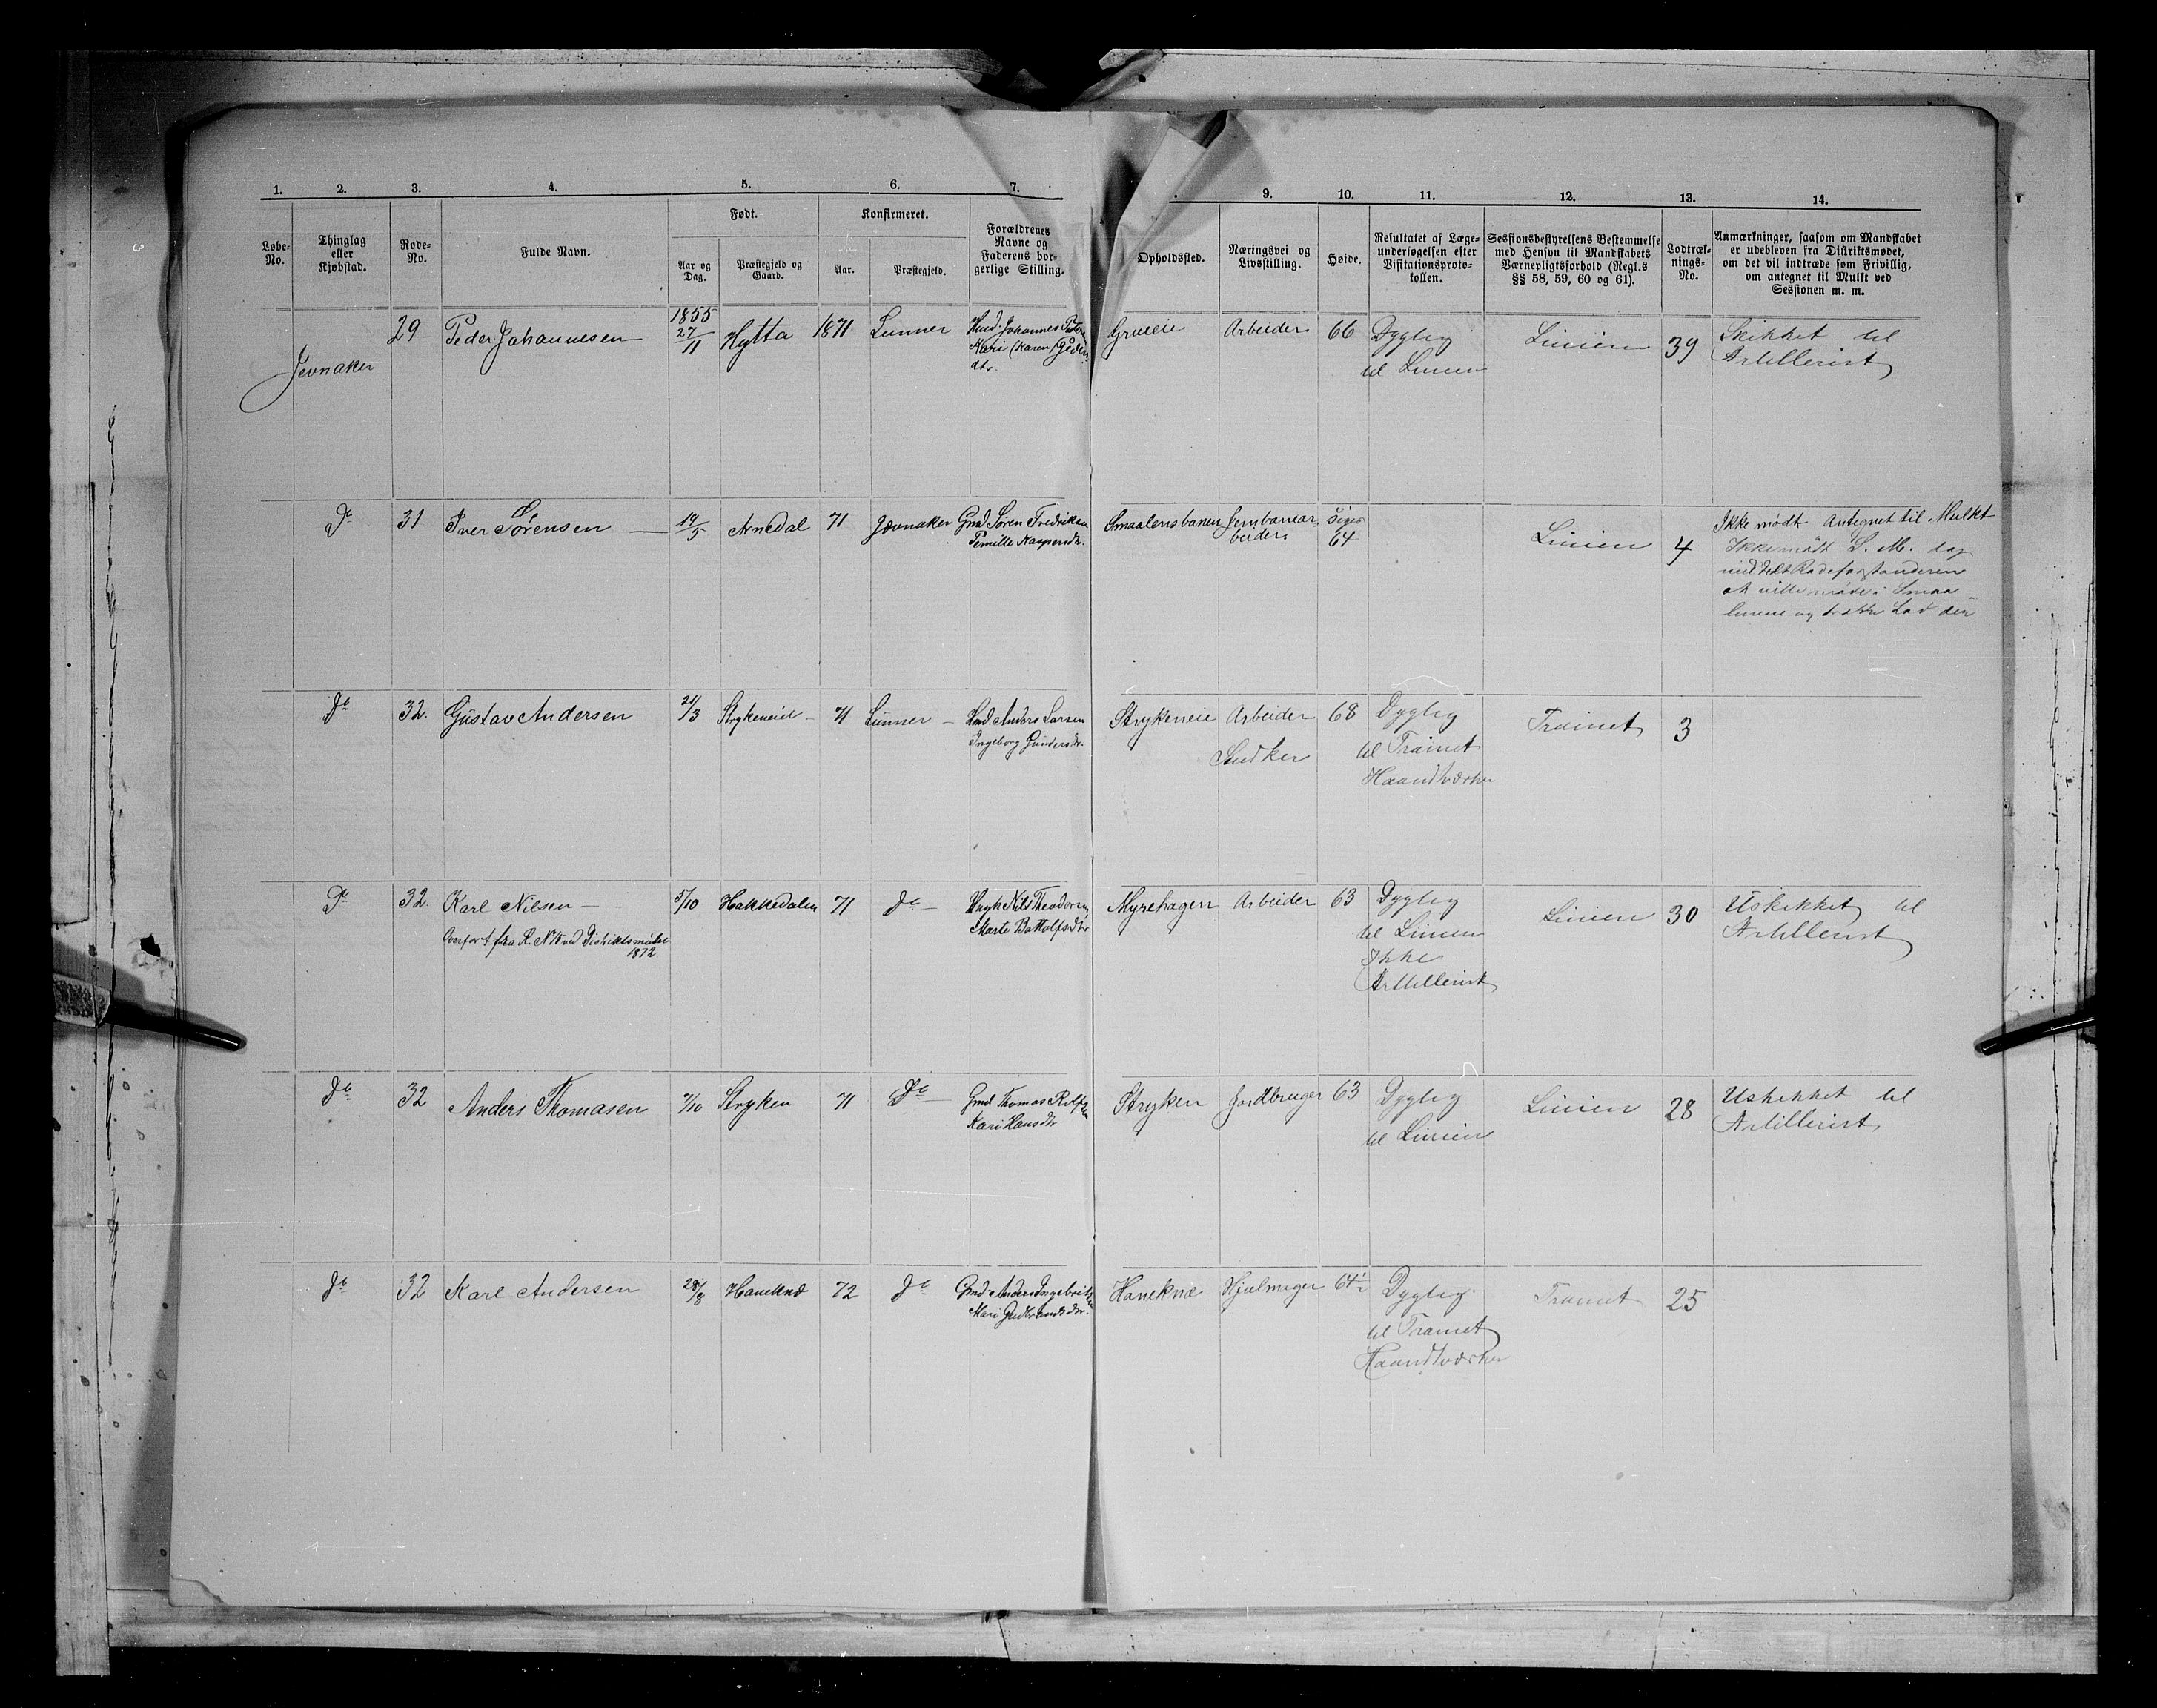 1. 2. 3. 4. 5. 6. 7. 9. 10. 11. 12. 13. 14.
Løbe-No.
Thinglag eller Kjøbstad.
Rode-No.
Fulde Navn.
Født.
Aar og Dag.
Præstegjeld og Gaard.
Konfirmeret.
Aar.
Præstegjeld.
Forældrenes Navne og Faderens borgerlige Stilling.
Opholdssted.
Næringsvei og Livsstilling.
Høide.
Resultatet af Lægeundersøgelsen efter Visitationsprotokollen.
Sessionsbestyrelsens Bestemmelse med Hensyn til Mandskabets Værnepligtsforhold (Regl.s §§ 58, 59, 60 og 61).
Lodtræknings-No.
Anmærkninger, saasom om Mandskabet er udebleven fra Distriktsmødet, om det vil indtræde som Frivillig, om antegnet til Mulkt ved Sessionen m. m.
Jevnaker
29 Peder Johannesen
1855
27/11 Hytta 1871 Lunner
Johannes
Kari (Karen)
dtr.
Grueeie Arbeider 66
Dygtig
til Linien
Linien 39
Skikket til
Artillerist
Do 31 Iver Sørensen — 14/5 Arnedal 71 Jevnaker
Gmd Søren Fredriksen
Pernille Kaspersdr.
Smaalensbanen Jernbanear-
beider
siger
64
Linien 4
Ikke mødt Antegnet til Mulkt
Ikke mødt S. M. dog
meddelt Rodeforstanderen
at ville møde i Smaa-
lenene og trække Lod der
Do 32. Gustav Andersen 21/3 Strykeneiet — 71 Lunner —
Anders Larsen
Ingeborg Gundersdr.
Strykeneie Arbeider 68
Snedker
Dygtig
til Trainet
Haandværker
Trainet 3
Do 32. Karl Nilsen —
Overført fra R. No ved Distriktsmødet
1872
5/10 Hakkedalen 71 Do —
Nils Theodorsen
Marte Bottolfsdtr
Myrehagen Arbeider 63
Dygtig
til Linien
Ikke
Artillerist
Linien 30
Uskikket til
Artillerist
Do 32 Anders Thomasen 7/10 Stryken 71 Do —
Gmd Thomas Rolfsen
Kari Hansdtr
Stryken Jordbruger 63
Dygtig
til Linien
Linien 28
Uskikket til
Artillerist
Do 32 Karl Andersen 28/8 Haneknæ 72 Do
Gmd Anders Ingebritsen
Mari Gudbrandsdtr.
Haneknæ Hjulmager 64½
Dygtig
til Trainet
Haandværker
Trainet 25